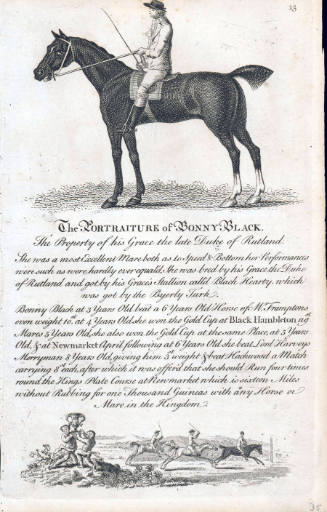 23
The PORTRAITURE of BONNY BLACK.
The Property of his Grace the late Duke of Rutland.
She was a most Excellent Mare both as to Speed & Bottom her Performances
were such as were hardly ever equal'd. She was bred by his Grace the Duke
of Rutland and got by his Graces Stallion call'd Black Hearty, which
was got by the Byerly Turk.
Bonny Black at 3 Years Old beat a 6 Years Old Horse of Mr. Framptons
even weight 10st. at 4 Years Old she won the Gold Cup at Black Hambleton agst
Mares 5 Years Old, she also won the Gold Cup at the same Place, at 5 Years
Old, & at Newmarket April following at 6 Years Old she beat Lord Harveys
Merryman 8 Years Old, giving him 3st weight & beat Hackwood a Match
carrying 8st each, after which it was offer'd that she should Run four times
round the Kings Plate Course at Newmarket which is sixteen Miles
without Rubbing for one Thousand Guineas with any Horse or
Mare in the Kingdom.
35